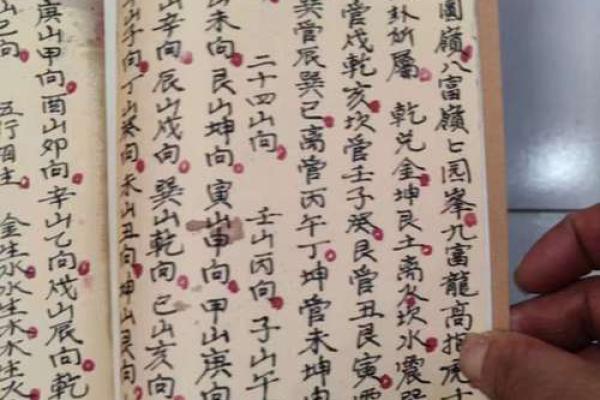 圓嶺八富嶺七园峯九富龍高指虎
卦所屬 乾兌金坤艮土離火坎水震巽
管戌乾亥坎管壬子癸艮管丑艮寅
巽管辰巽巳离管丙午丁坤管未坤申
二十四山向 壬山丙向 子山午
山未向艮山坤向寅山申向甲山庚向
山辛向辰山戌向巽山乾向巳山亥向
山子向丁山癸向未山丑向坤山艮向
庚山甲向酉山卯向辛山乙向戌山辰向乾
山巳向 五行生 金生水水生木木生火